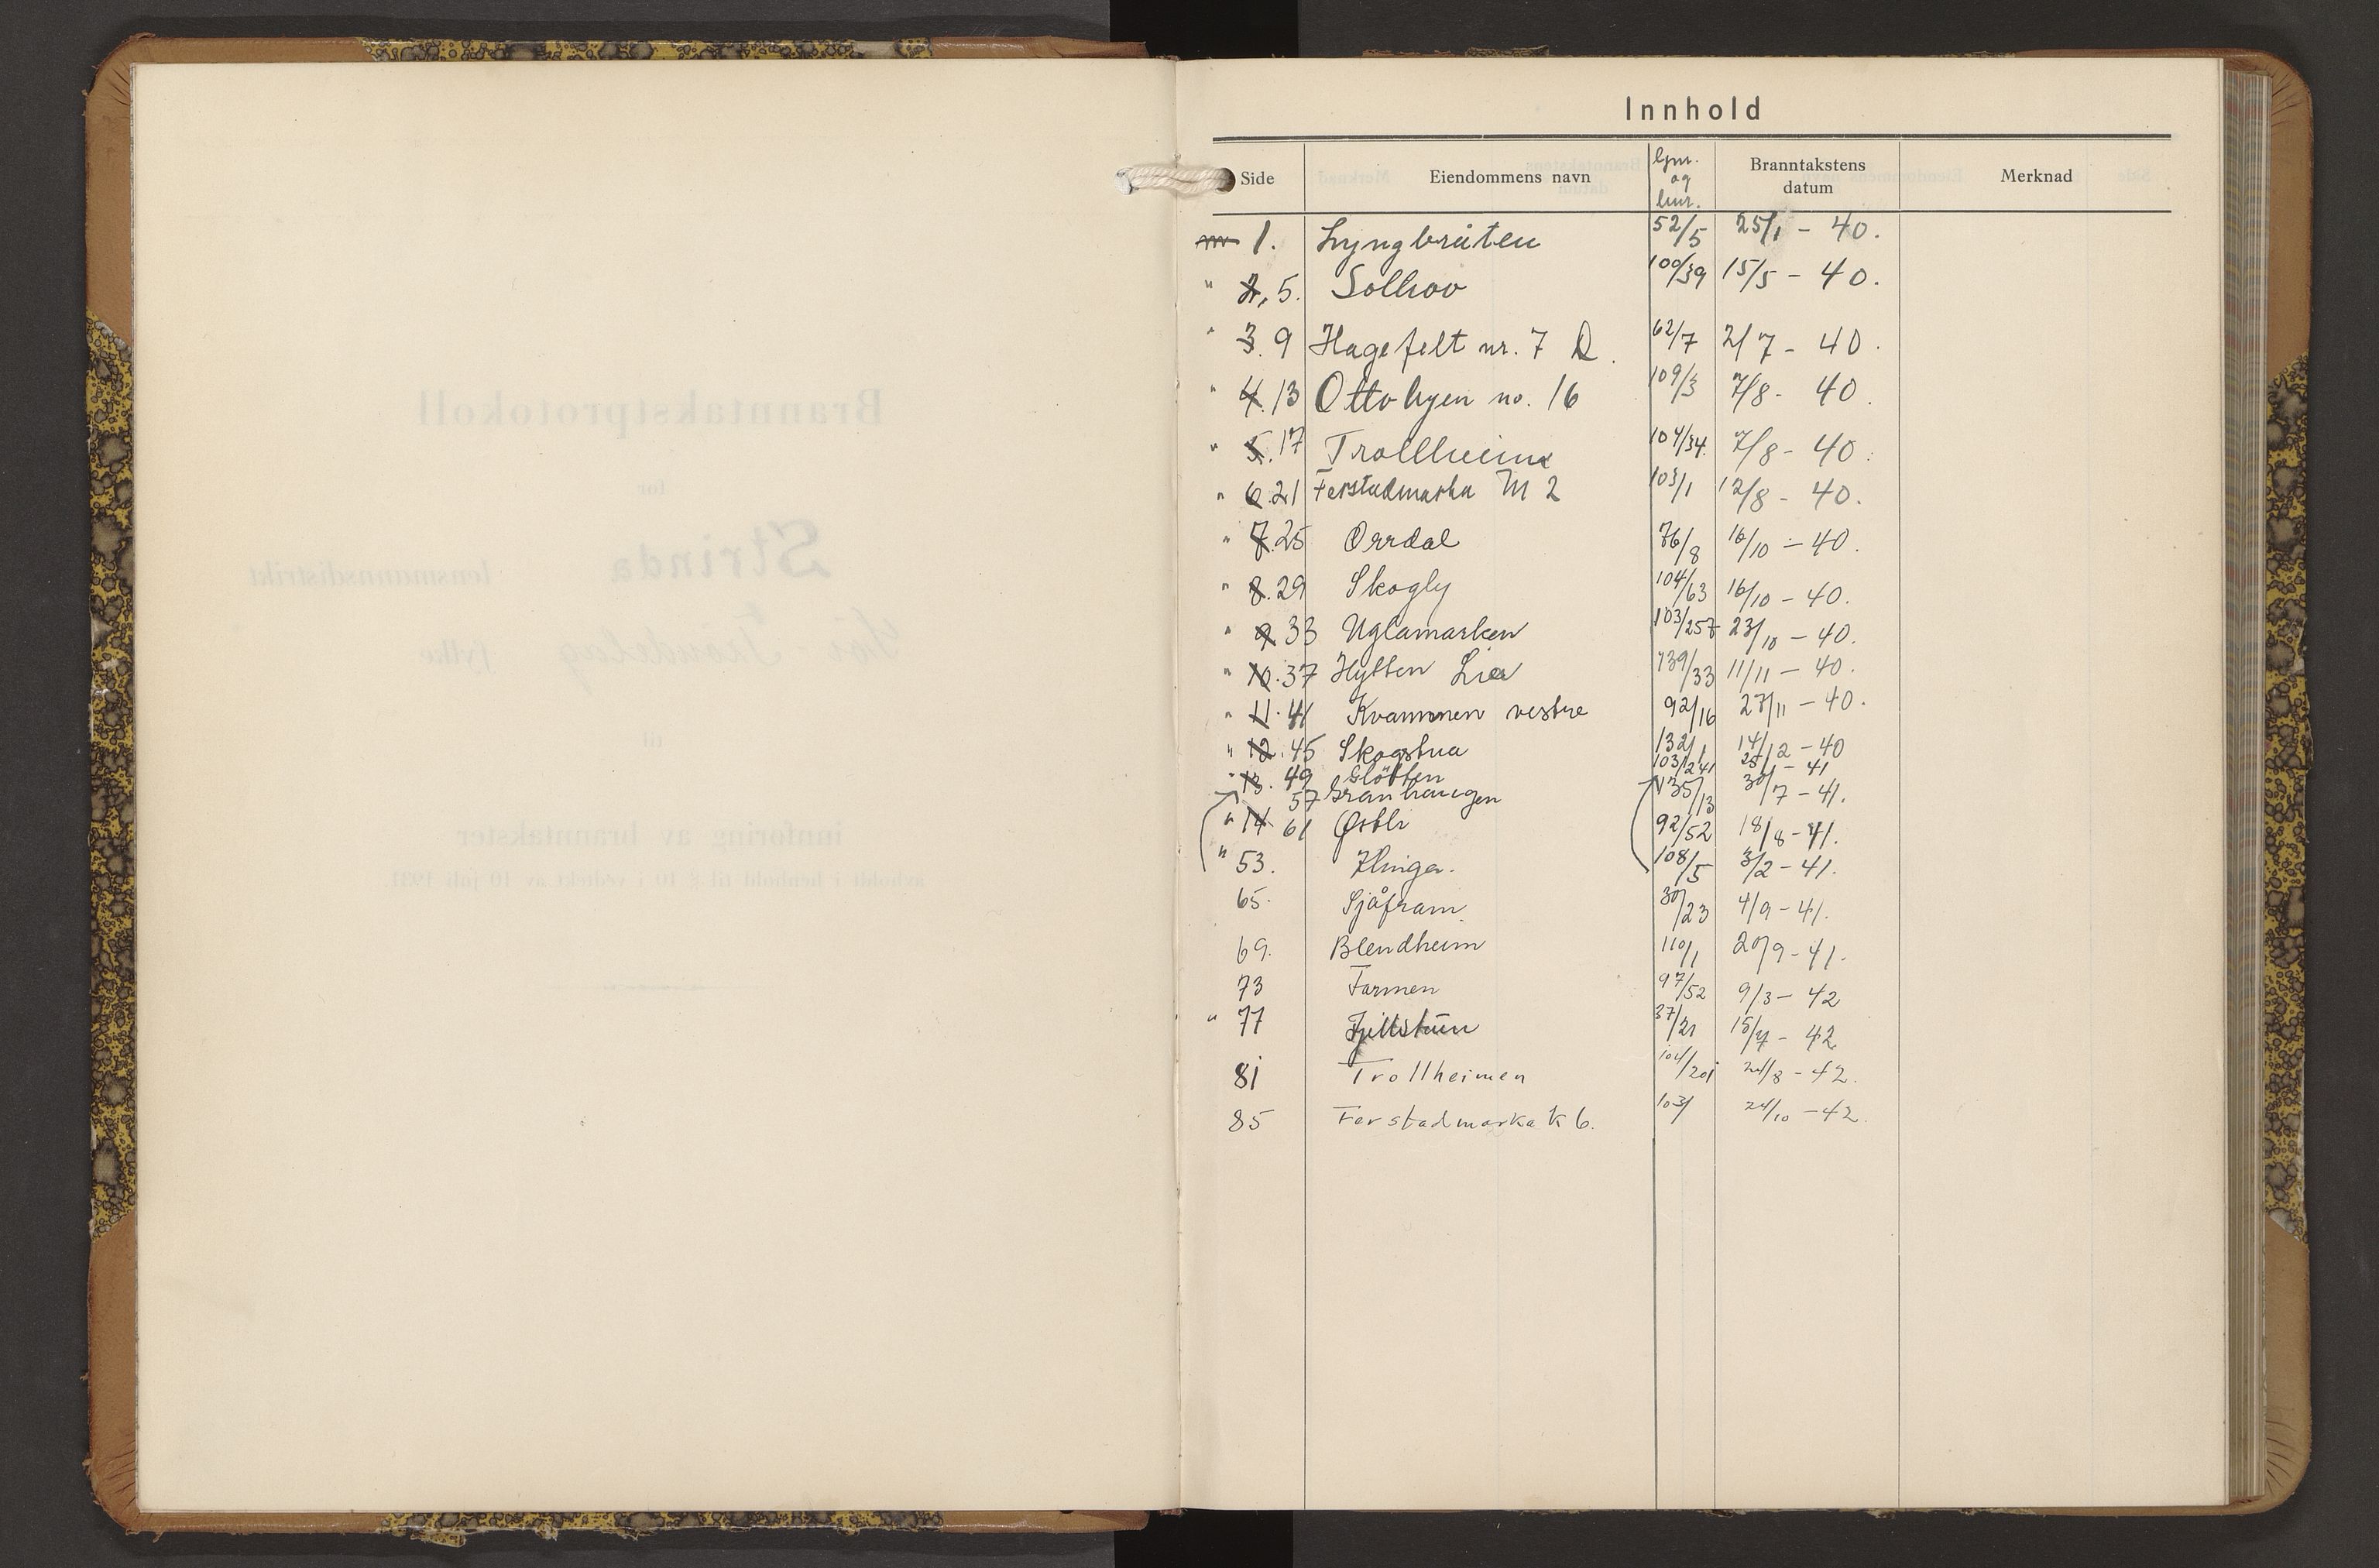 Innhold
Side Eiendommens navn gnr. og bnr. Branntakstens datum Merknad
1. Lyngbråten 52/5 25/1 - 40.
" 2, 5. Solhov 100/39 15/5 - 40.
" 3. 9 Hagefelt nr. 7 Q. 62/7 2/7 - 40.
" 4. 13 Ottohyen no. 16 109/3 7/8 - 40.
" 5. 17 Trollheim 104/34. 7/8 - 40.
" 6. 21 Ferstadmarka M 2 103/1 12/8 - 40.
" 7. 25 Orrdal 76/8 16/10 - 40.
" 8. 29 Skogly 104/63 16/10 - 40.
" 9. 33 Uglamarken 103/257 23/10 - 40.
" 10. 37 Hytten Lia 139/33 11/11 - 40.
" 11. 41 Kvammen vestre 92/16 27/11 - 40.
" 12. 45 Skogstua 132/1 14/12 - 40
" 13. 49 Gløtten 103/241 25/1 - 41
57 Granhaugen 135/13 30/7 - 41.
" 14 61 Østli 92/52 18/8 - 41.
" 53. Klinga. 108/5 3/2 - 41.
65. Sjåfram 30/23 4/9 - 41.
69. Blendheim 110/1 20/9 - 41.
73 Farmen 97/52 9/3 - 42
" 77 Fjellstun 37/21 15/7 - 42
81 Trollheimen 104/201 24/8 - 42.
85 Ferstadmarka K 6. 103/ 24/10 - 42.